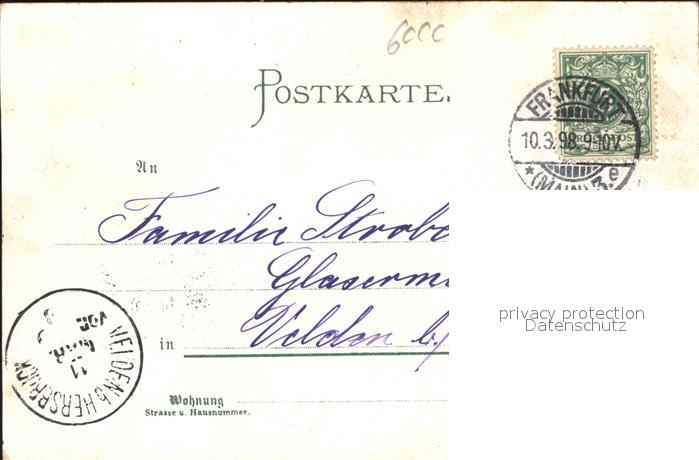 6000
POSTKARTE.
FRANKFURT
10.3.98.9-10V.
*(MAIN) 3.e
An
Familie Strobe
Glaserm
Velden b/
in
privacy protection
Datenschutz
VELDEN b. HERSBRUCK
11
MAR
Wohnung
Strasse u. Hausnummer.